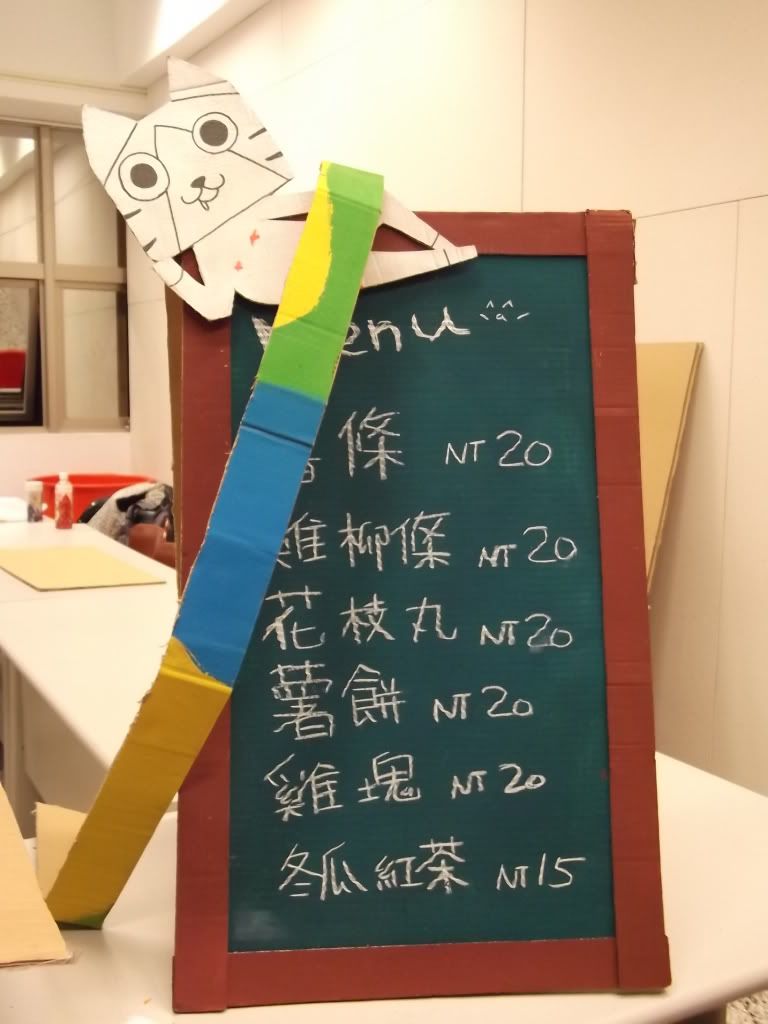 Menu
條 NT 20
雞柳條 NT 20
花枝丸 NT 20
薯餅 NT 20
雞塊 NT 20
冬瓜紅茶 NT 15